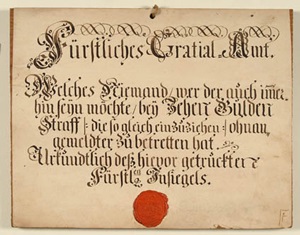 Fürstliches Gratial-Amt.
Welches Niemand / wer der auch im̅er
hin seyn möchte / bey Zehen Gulden
Straff /: die so gleich einzuziehen :/ ohnan,
gemeldter zu betretten hat.
Urkundtlich deß hievor getruckten
Fürstl: Insigels.